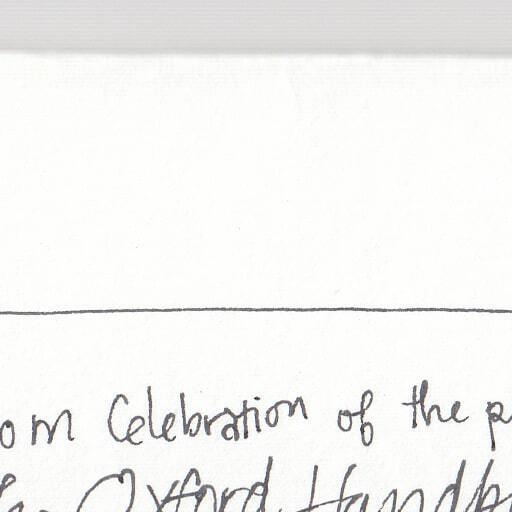 om Celebration of the p
Oxford Handb